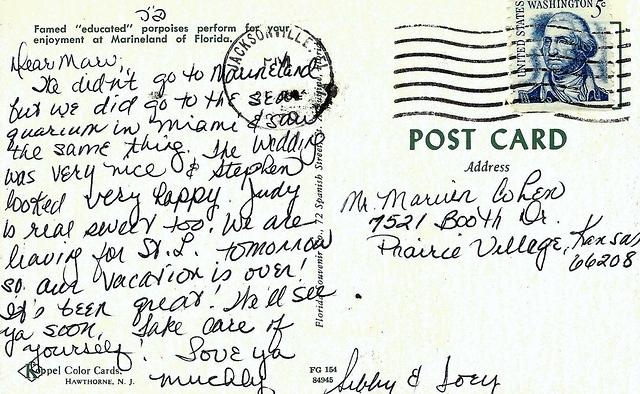 Famed "educated" porpoises perform for your
enjoyment at Marineland of Florida.
Dear Marv,
We didn't go to Marineland
but we did go to the sea
quarium in Miami & saw
the same thing. The wedding
was very nice & Stephen
looked very happy. Judy
is real sweet too. We are
leaving for St. L. tomorrow
so our vacation is over!
It's been great! We'll see
ya soon. Take care of
yourself! Love ya
muchly
Libby & Joey
Koppel Color Cards.
HAWTHORNE, N. J.
FG 154
84945
Florida Souvenir Co., 72 Spanish Street, St. Augustine, Florida
JACKSONVILLE, FL
PM
UNITED STATES
WASHINGTON 5c
POST CARD
Address
Mr. Marvin Cohen
7521 Booth Dr.
Prairie Village, Kansas
66208